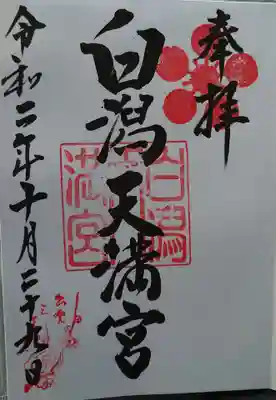 奉拝
白潟天満宮
令和二年十月二十九日
白潟
天
満宮